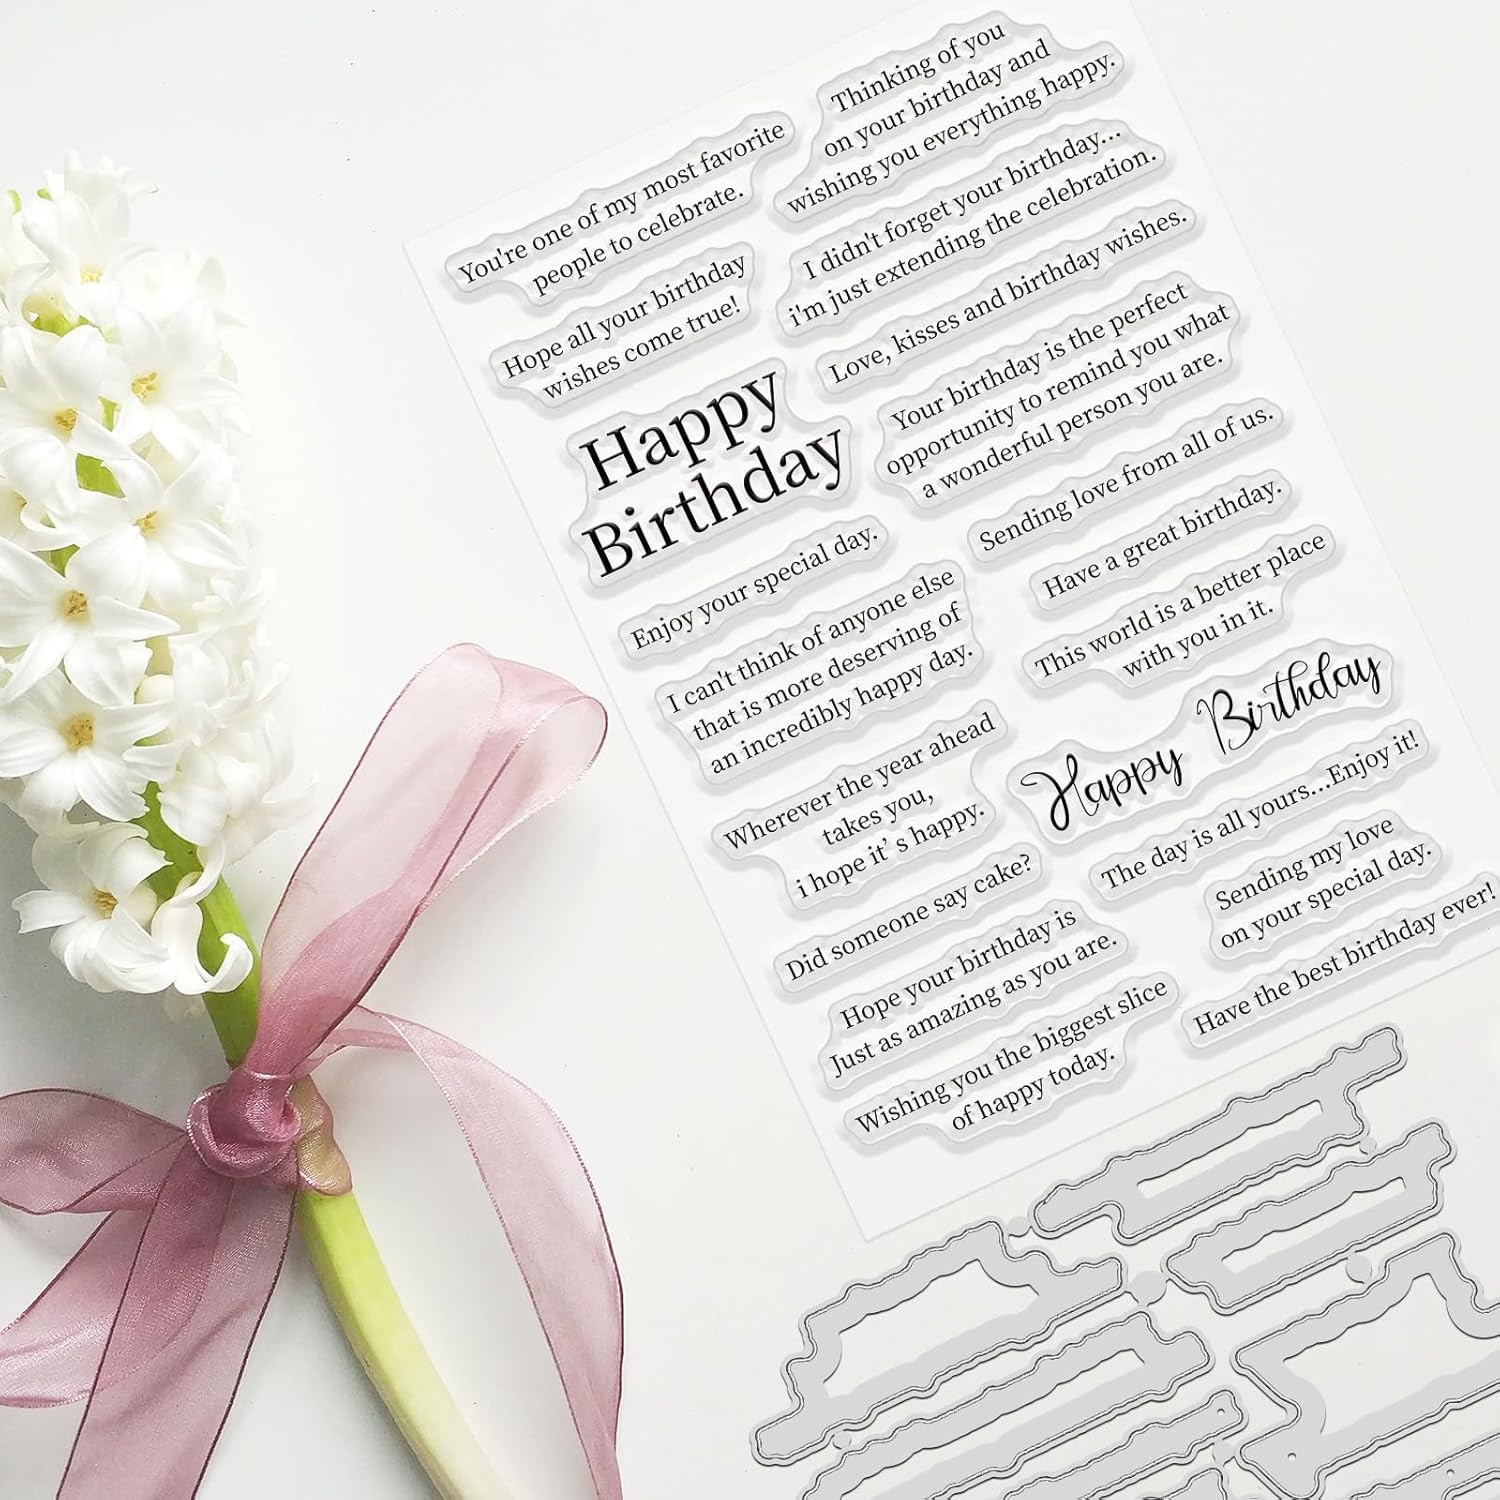 You're one of my most favorite
people to celebrate.
Hope all your birthday
wishes come true!
Happy
Birthday
Enjoy your special day.
I can't think of anyone else
that is more deserving of
an incredibly happy day.
Wherever the year ahead
takes you,
i hope it’s happy.
Did someone say cake?
Hope your birthday is
Just as amazing as you are.
Wishing you the biggest slice
of happy today.
Thinking of you
on your birthday and
wishing you everything happy.
I didn't forget your birthday...
i'm just extending the celebration.
Love, kisses and birthday wishes.
Your birthday is the perfect
opportunity to remind you what
a wonderful person you are.
Sending love from all of us.
Have a great birthday.
This world is a better place
with you in it.
Happy Birthday
The day is all yours...Enjoy it!
Sending my love
on your special day.
Have the best birthday ever!